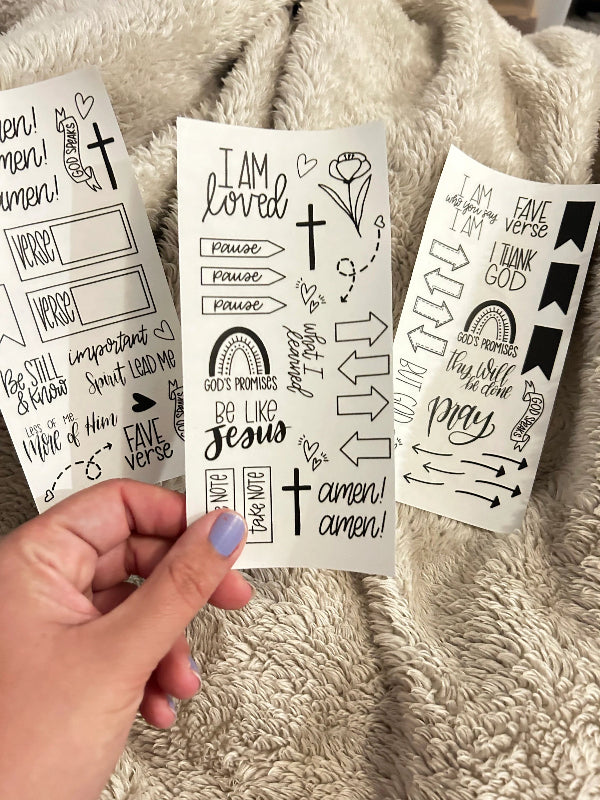 amen!
amen!
GOD SPEAKS
verse
verse
Be STILL
& KNOW
important
Spirit LEAD ME
Less OF ME
More of Him
FAVE
verse
GOD SPEAKS
I AM
loved
pause
pause
pause
what I
learned
GOD'S PROMISES
BE LIKE
Jesus
take NOTE
amen!
amen!
I AM
who you say
I AM
FAVE
verse
I THANK
GOD
GOD'S PROMISES
thy will
be done
BUT GOD
pray
GOD SPEAKS